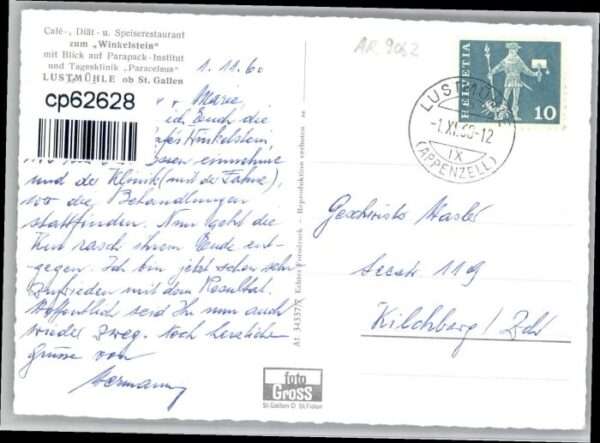 Café-, Diät- u. Speiserestaurant
zum „Winkelstein"
mit Blick auf Parapack-Institut
und Tagesklinik „Paracelsus"
LUSTMÜHLE ob St. Gallen
cp62628
AR 9062
1.11.60
Marie,
ich Euch die
Cafés Winkelstein,
Essen einnehme
und der Klinik (mit der Fahne),
wo die Behandlungen
stattfinden. Nun geht die
Kur rasch ihrem Ende ent-
gegen. Ich bin jetzt schon sehr
zufrieden mit dem Resultat.
Hoffentlich seid Ihr nun auch
wieder zweg. Noch herzliche
Grüsse von
Hermann
Echter Fotodruck - Reproduktion verboten
HELVETIA
10
LUSTMÜHLE
-1.XI.60-12
IX
(APPENZELL)
Geschwister Hasler
Seestr. 119
Kilchberg / Zch
foto
Gross
St. Gallen O St. Fiden